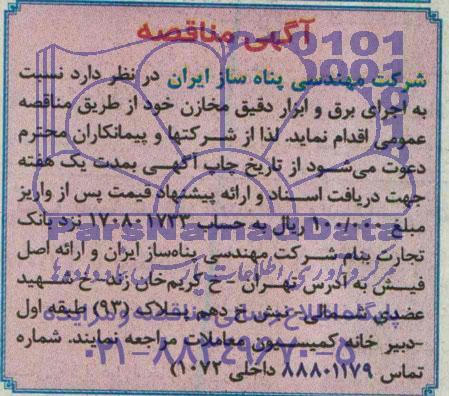 آگهی مناقصه
شرکت مهندسی پناه ساز ایران در نظر دارد نسبت
به اجرای برق و ابزار دقیق مخازن خود از طریق مناقصه
عمومی اقدام نماید. لذا از شرکتها و پیمانکاران محترم
دعوت می‌شود از تاریخ چاپ آگهی بمدت یک هفته
جهت دریافت اسناد و ارائه پیشنهاد قیمت پس از واریز
مبلغ ۱۰۰/۰۰۰ ریال به حساب ۱۷۰۸۰۱۷۳۳ نزد بانک
تجارت بنام شرکت مهندسی پناه‌ساز ایران و ارائه اصل
فیش به آدرس تهران - خ کریم‌خان زند - خ شهید
عضدی شمالی - نبش خ دهم پلاک (۹۳) طبقه اول
-دبیر خانه کمیسیون معاملات مراجعه نمایند. شماره
تماس ۸۸۸۰۱۱۷۹ داخلی ۱۰۷۲)
ParsNamadData
۰۲۱-۸۸۳۴۹۶۷۰-۵